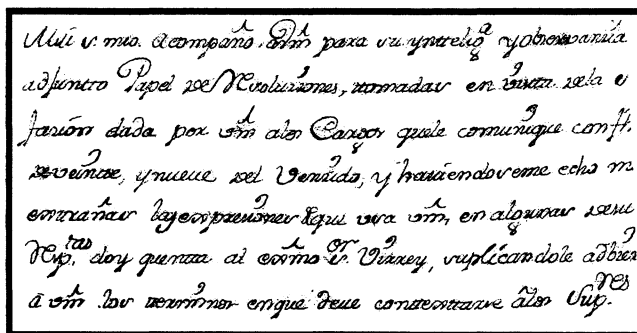 Mui s.r mio. Acompaño a Vm.d para su yntelig.a y observancia
adjunto Papel de Resoluciones, tomadas en vista de la
facion dada por Vm.d a los Cargos que le comunique con fha.
de veinte, y nueve del Vencido, y haviendoseme echo m
estrañas las expresiones de que usa Vm.d, en algunas de su
Resp.tas doy quenta al exmo S.r Virrey, suplicandole
a Vm.d los terminos en que deve contextarse a los Sup.res